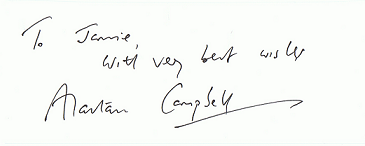 To Jamie,
With very best wishes
Alastair Campbell